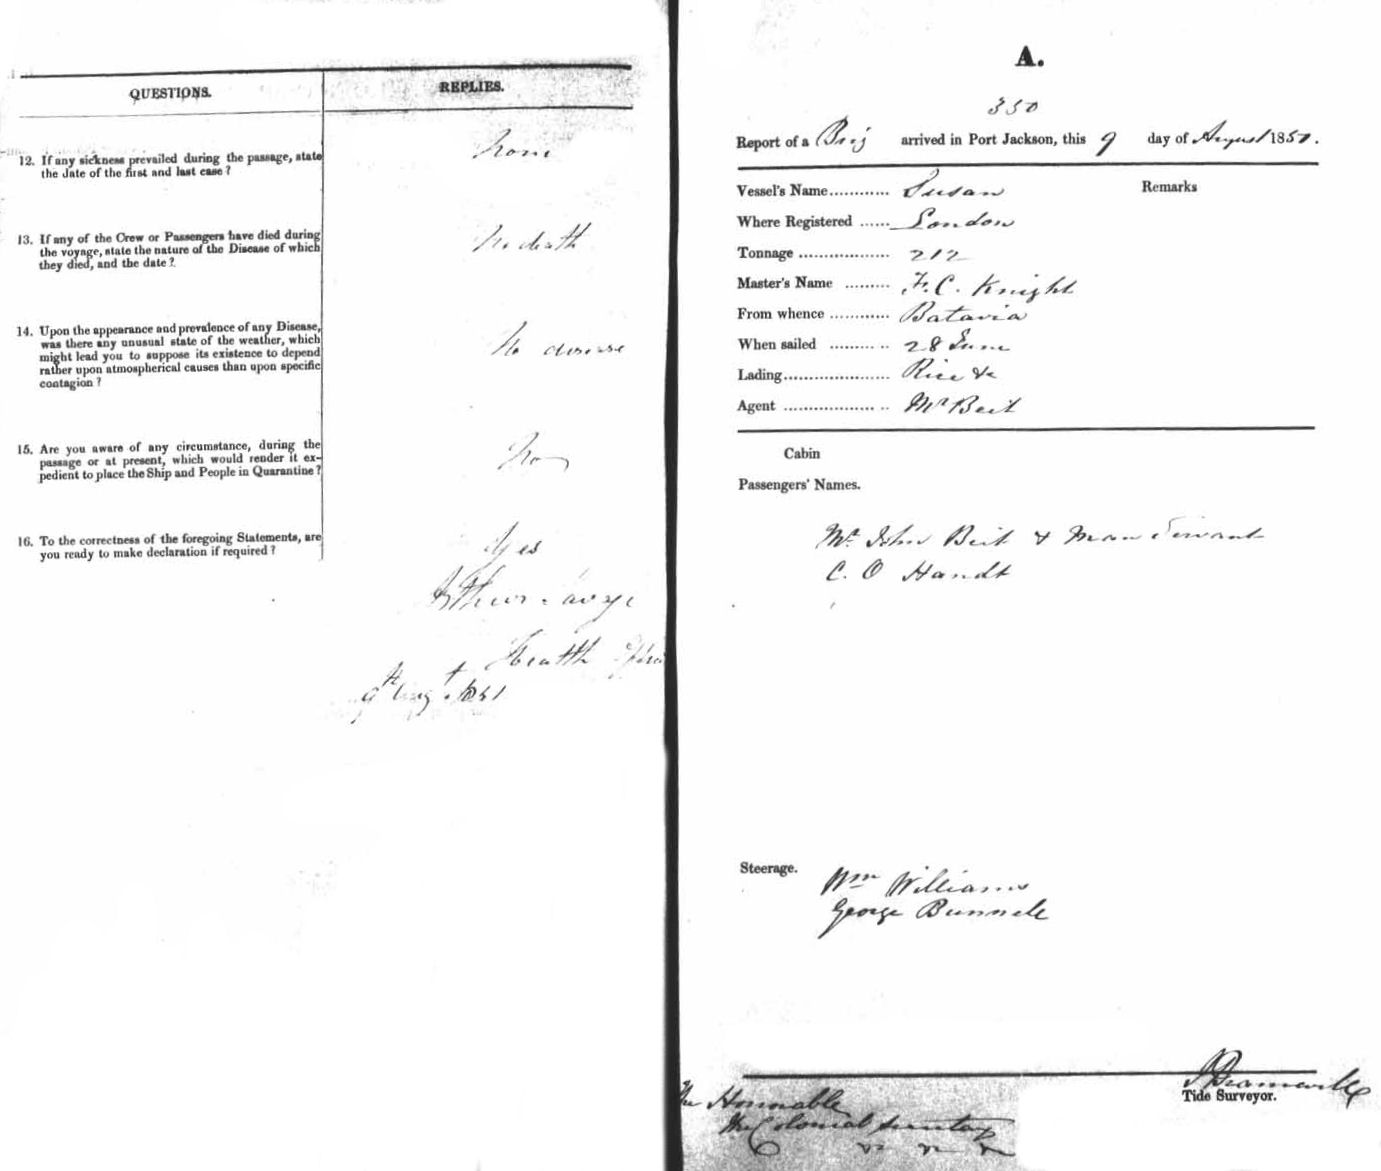 QUESTIONS.
REPLIES.
12. If any sickness prevailed during the passage, state
the date of the first and last case?
None
13. If any of the Crew or Passengers have died during
the voyage, state the nature of the Disease of which
they died, and the date?
No death
14. Upon the appearance and prevalence of any Disease,
was there any unusual state of the weather, which
might lead you to suppose its existence to depend
rather upon atmospherical causes than upon specific
contagion?
No disease
15. Are you aware of any circumstance, during the
passage or at present, which would render it ex-
pedient to place the Ship and People in Quarantine?
No
16. To the correctness of the foregoing Statements, are
you ready to make declaration if required?
Yes
Arthur Savage
Health
9th Augt 1851
A.
350
Report of a Brig arrived in Port Jackson, this 9 day of August 1851.
Vessel's Name............ Susan
Remarks
Where Registered ...... London
Tonnage .................. 212
Master's Name ......... F. C. Knight
From whence ............ Batavia
When sailed ......... .. 28 June
Lading..................... Rice &c
Agent .................. .. Mr Beit
Cabin
Passengers' Names.
Mr John Beit & Man Servant
C. O Handt
Steerage.
Wm Williams
George Bunnele
Tide Surveyor.
The Honorable
the Colonial Secretary